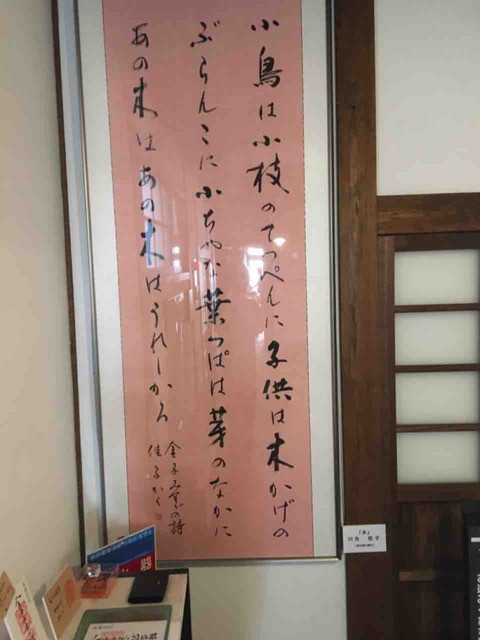 小鳥は小枝のてっぺんに子供は木かげの
ぶらんこに小ちゃな葉っぱは芽のなかに
あの木はあの木はうれしかろ
金子みすゞの詩
佳子かく
「木」